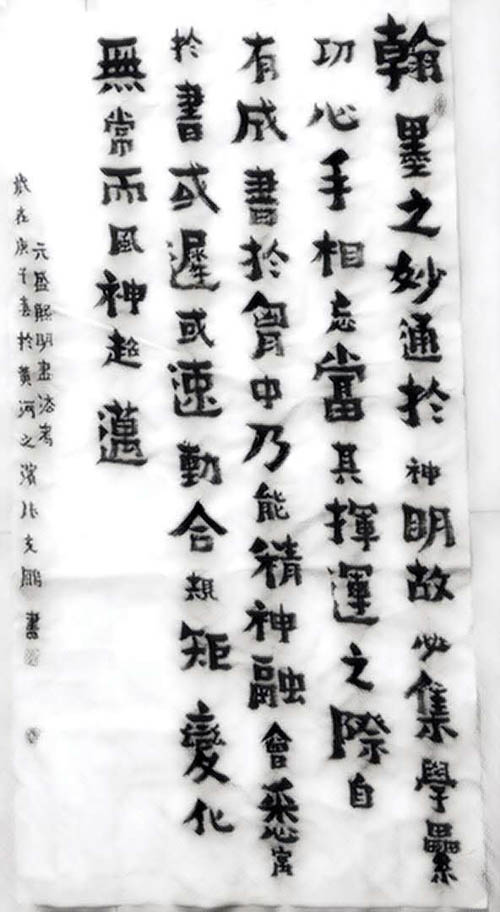 翰墨之妙通於神明故必集學纍
功心手相忘當其揮運之際自
有成書於胷中乃能精神融會悉寓
於書或遲或速動合規矩變化
無常而風神超邁
元盛熙明書法考
歲在庚子春於黃河之濱 書